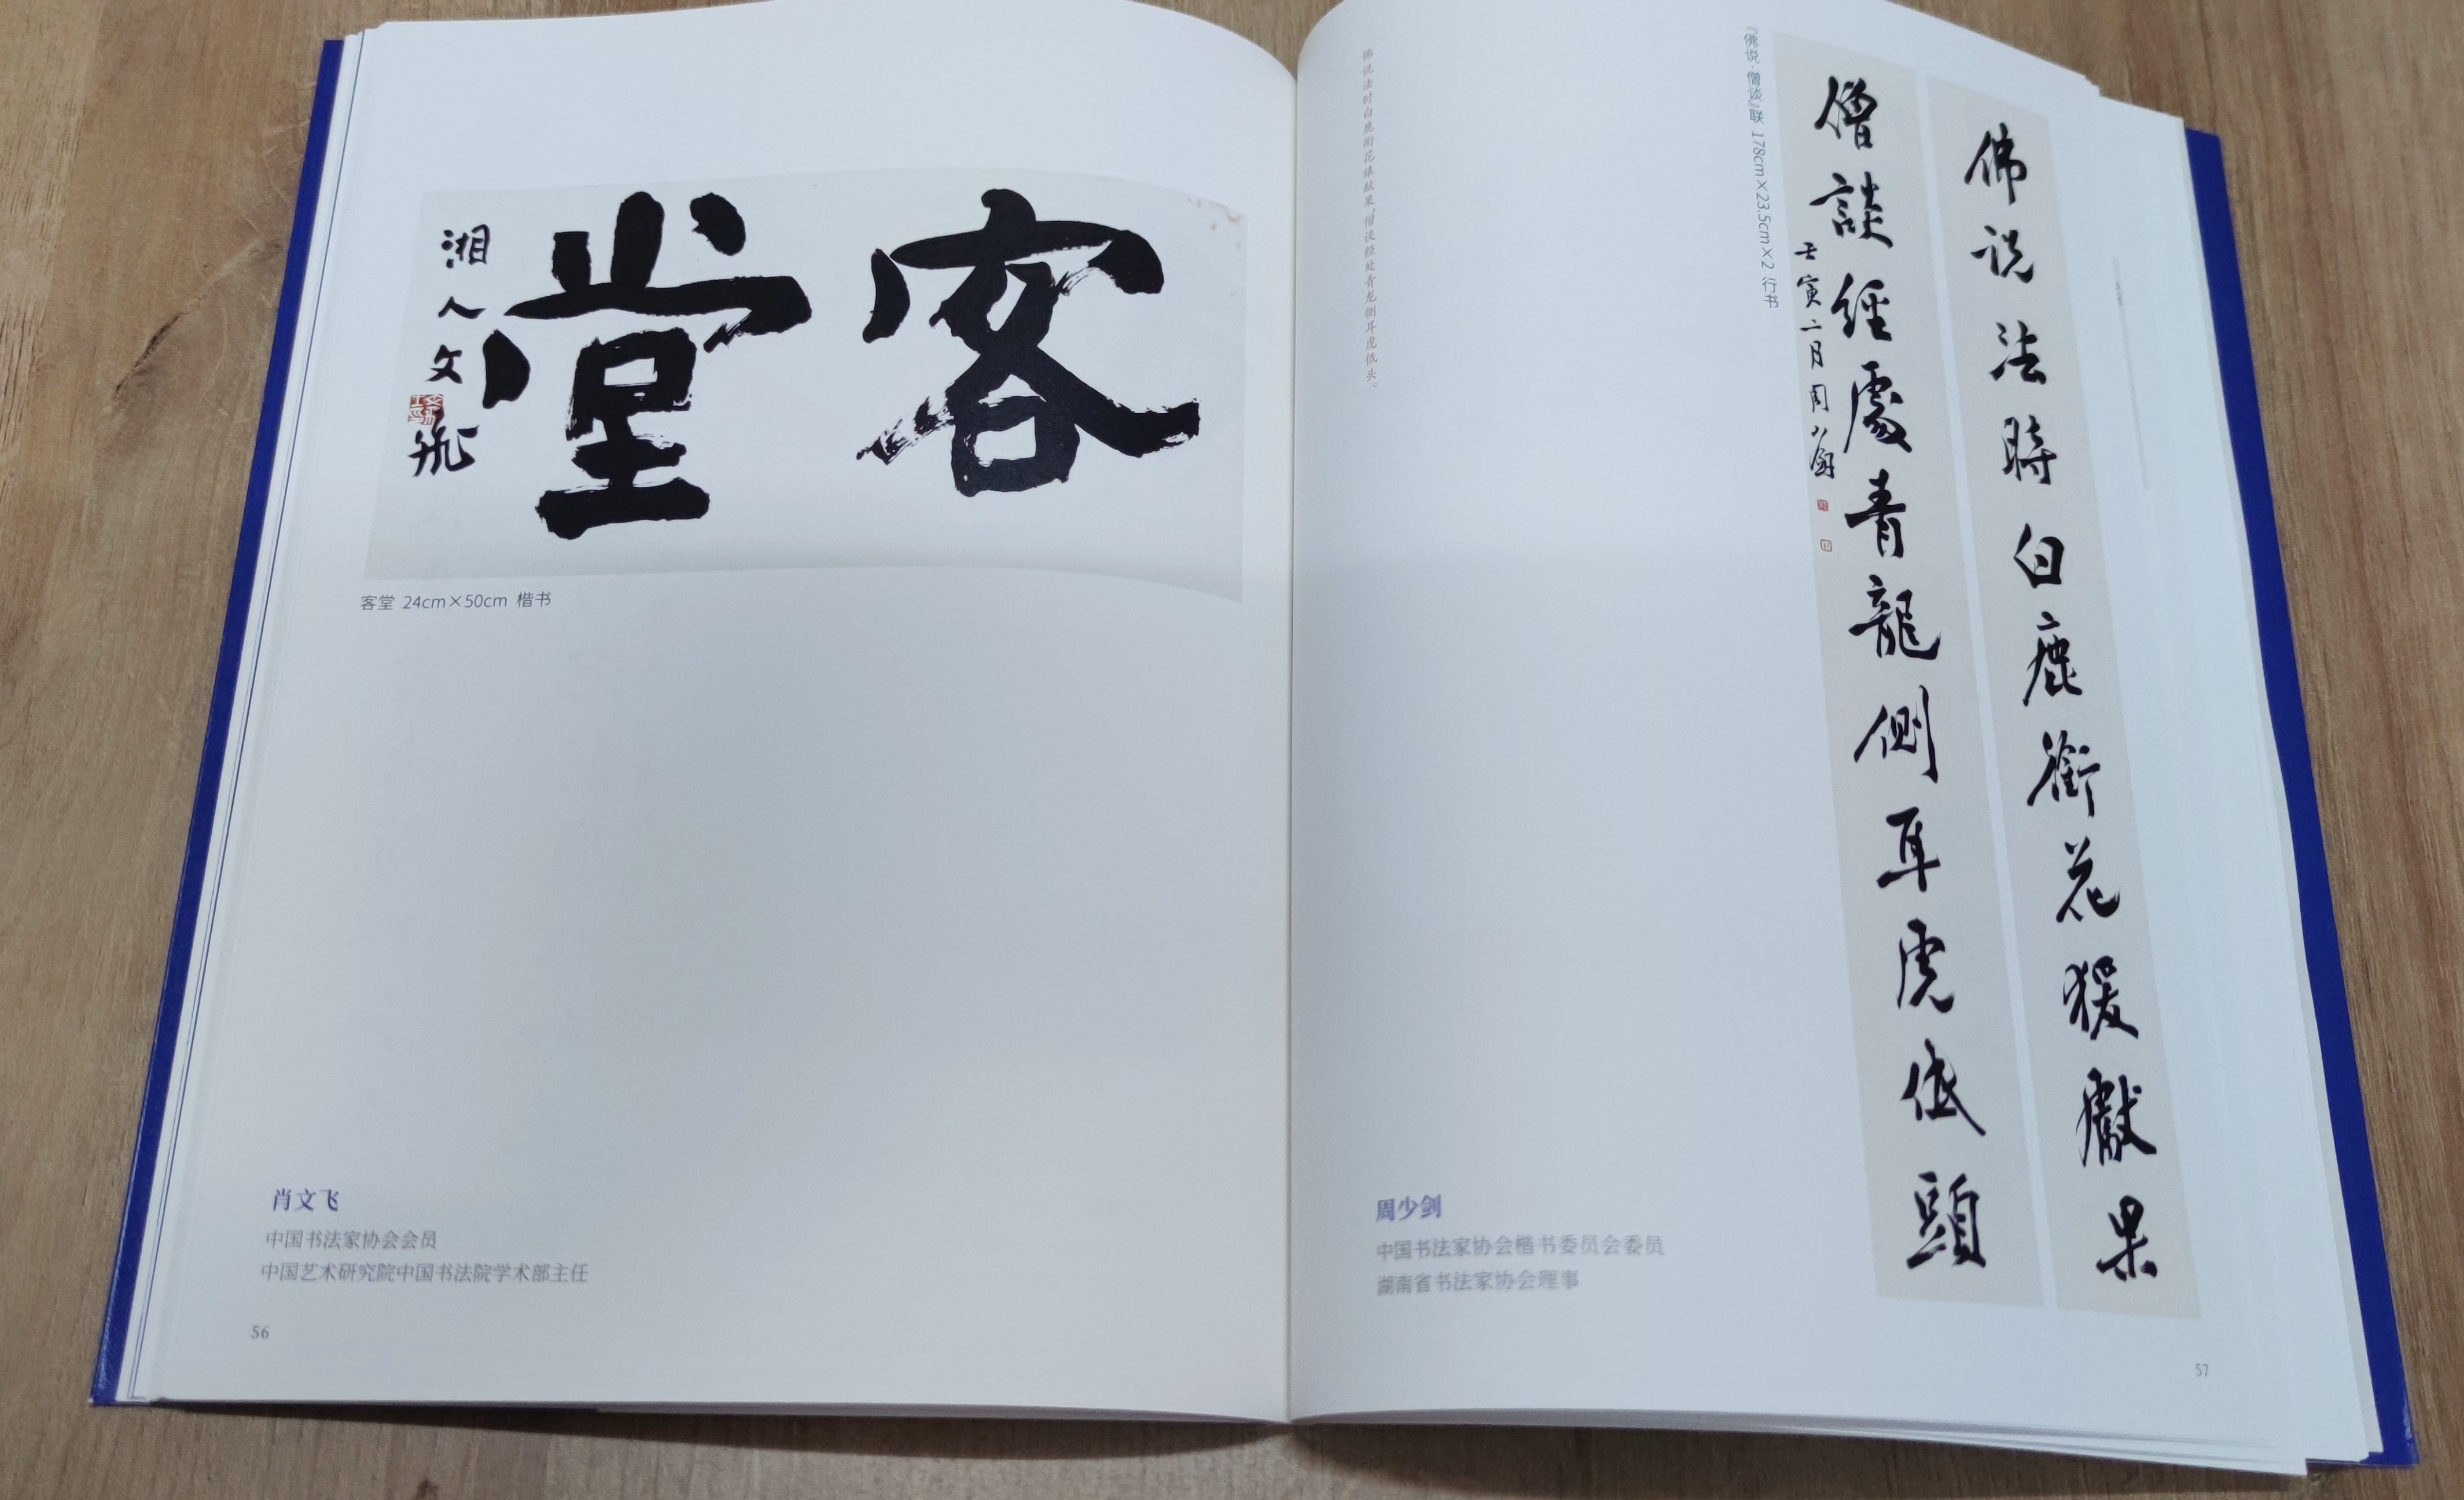 客堂
湘人文飛
客堂 24cm×50cm 楷书
肖文飞
中国书法家协会会员
中国艺术研究院中国书法院学术部主任
56
佛说法時白鹿銜花猨獻果
僧談經處青龍側耳虎低頭
壬寅二月周少劍
『佛说·僧谈』联 178cm×23.5cm×2 行书
佛说法时白鹿衔花猿献果，僧谈经处青龙侧耳虎低头。
周少剑
中国书法家协会楷书委员会委员
湖南省书法家协会理事
57